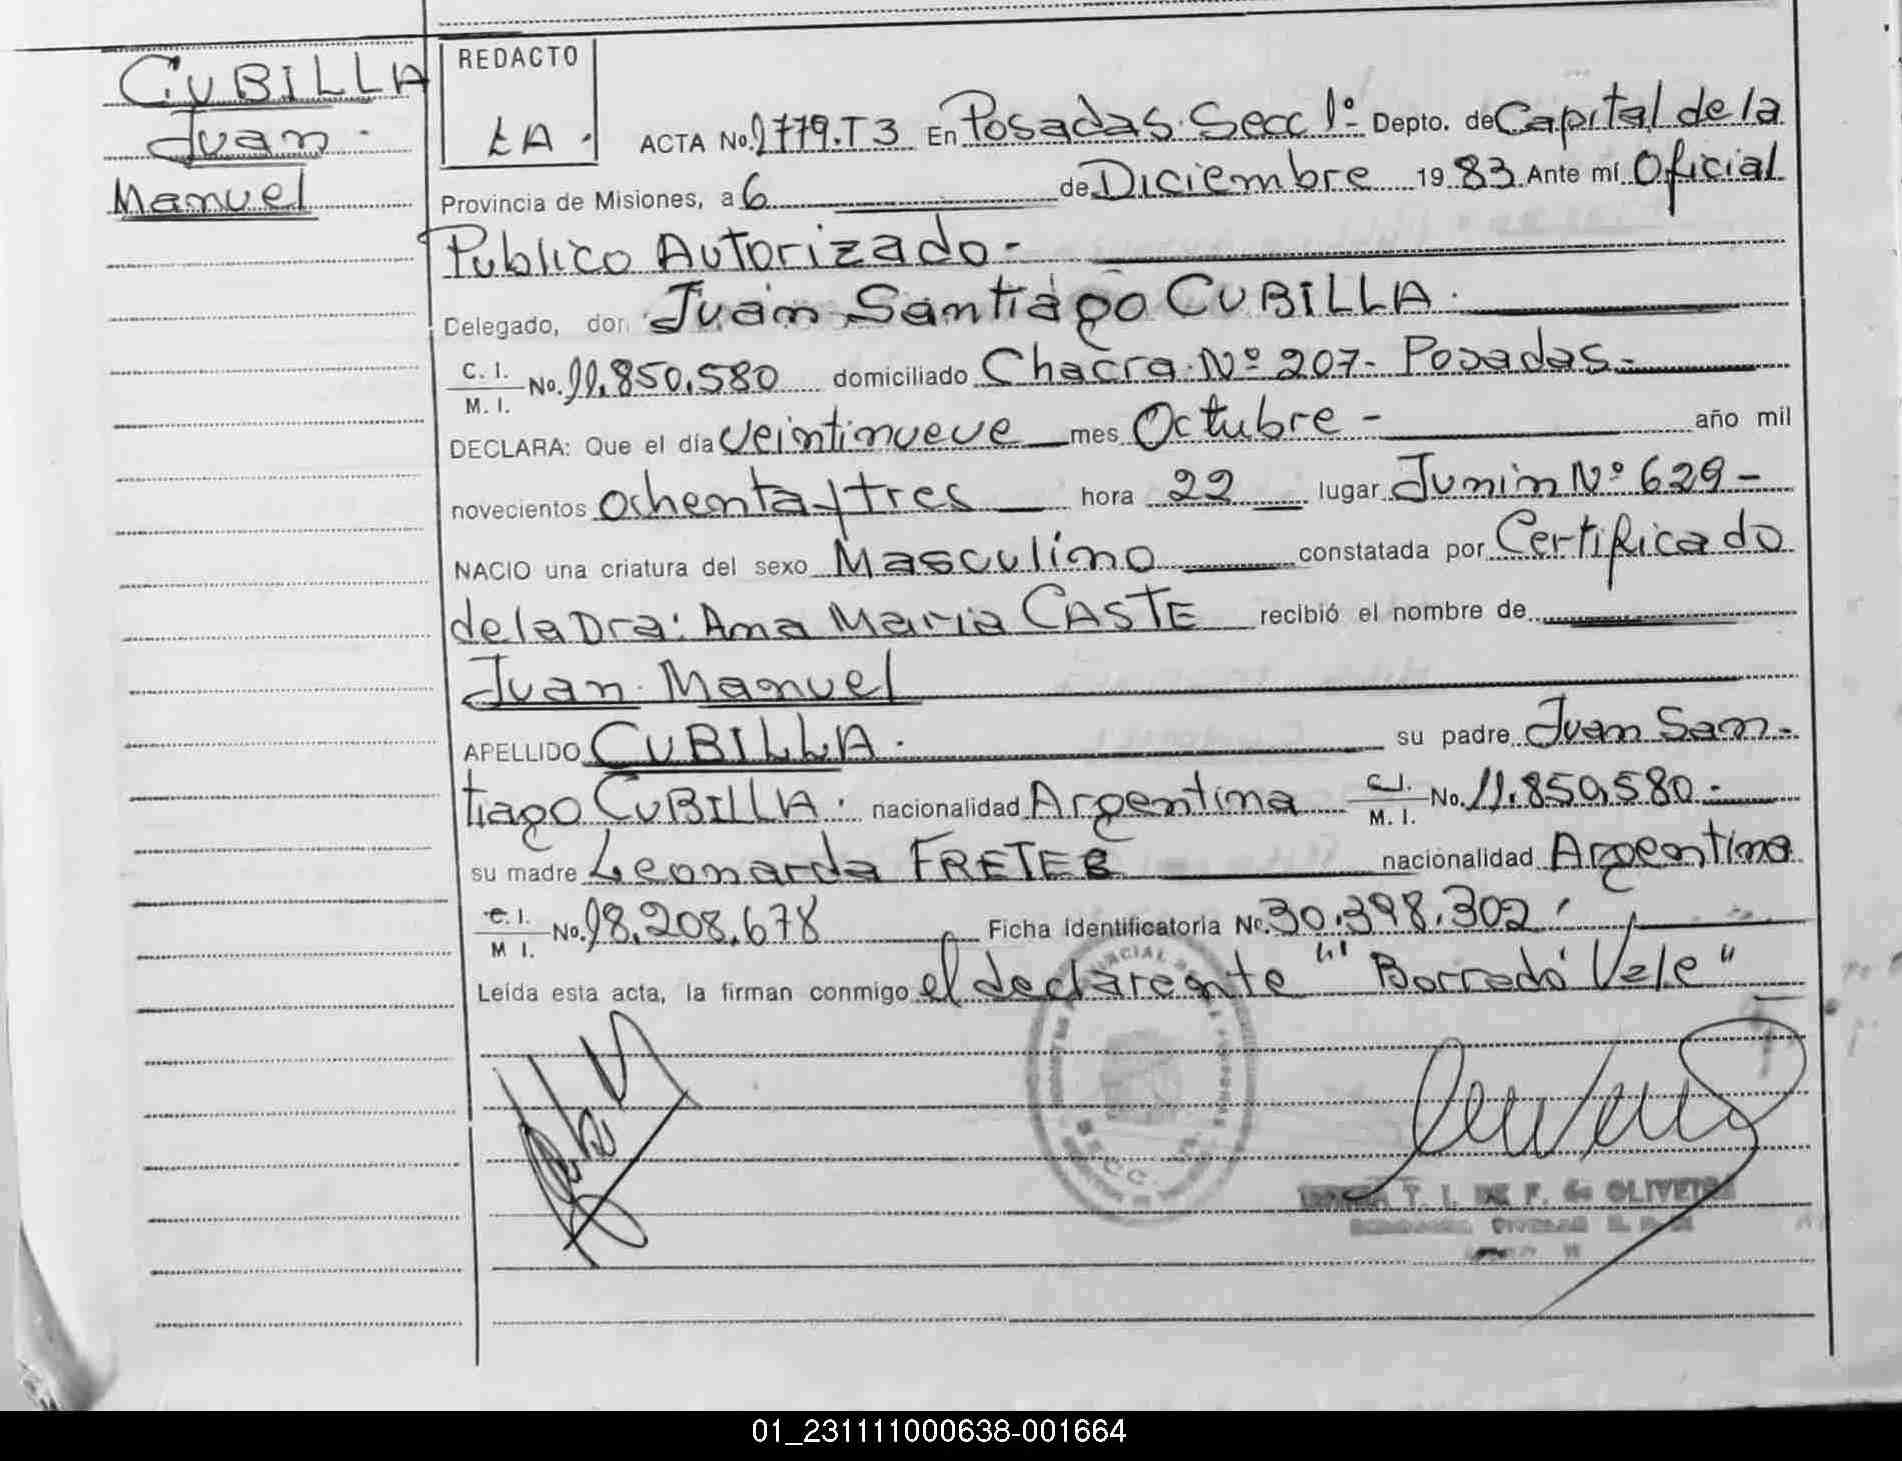 CUBILLA
Juan
Manuel
REDACTO
LA.
ACTA No. 2779. T 3 En Posadas. Secc 1º Depto. de Capital de la
Provincia de Misiones, a 6 de Diciembre 19 83. Ante mí Oficial
Publico Autorizado-
Delegado, don Juan Santiago CUBILLA.
C. I.
M. I.
No. 11.850.580 domiciliado Chacra Nº 207- Posadas-
DECLARA: Que el día veintinueve mes Octubre - año mil
novecientos ochenta y tres hora 22 lugar Junin Nº 629-
NACIO una criatura del sexo Masculino constatada por Certificado
de la Dra: Ana Maria CASTE recibió el nombre de
Juan Manuel
APELLIDO CUBILLA. su padre Juan San-
tiago CUBILLA. nacionalidad Argentina C.I.
M. I. No. 11.850.580-
su madre Leonarda FRETES nacionalidad Argentina
C. I.
M. I. No. 18.208.678 Ficha Identificatoria No. 30.398.302
Leída esta acta, la firman conmigo el declarante "" Borrado' Vale"
T. I. DE F. de OLIVEIRA
01_231111000638-001664